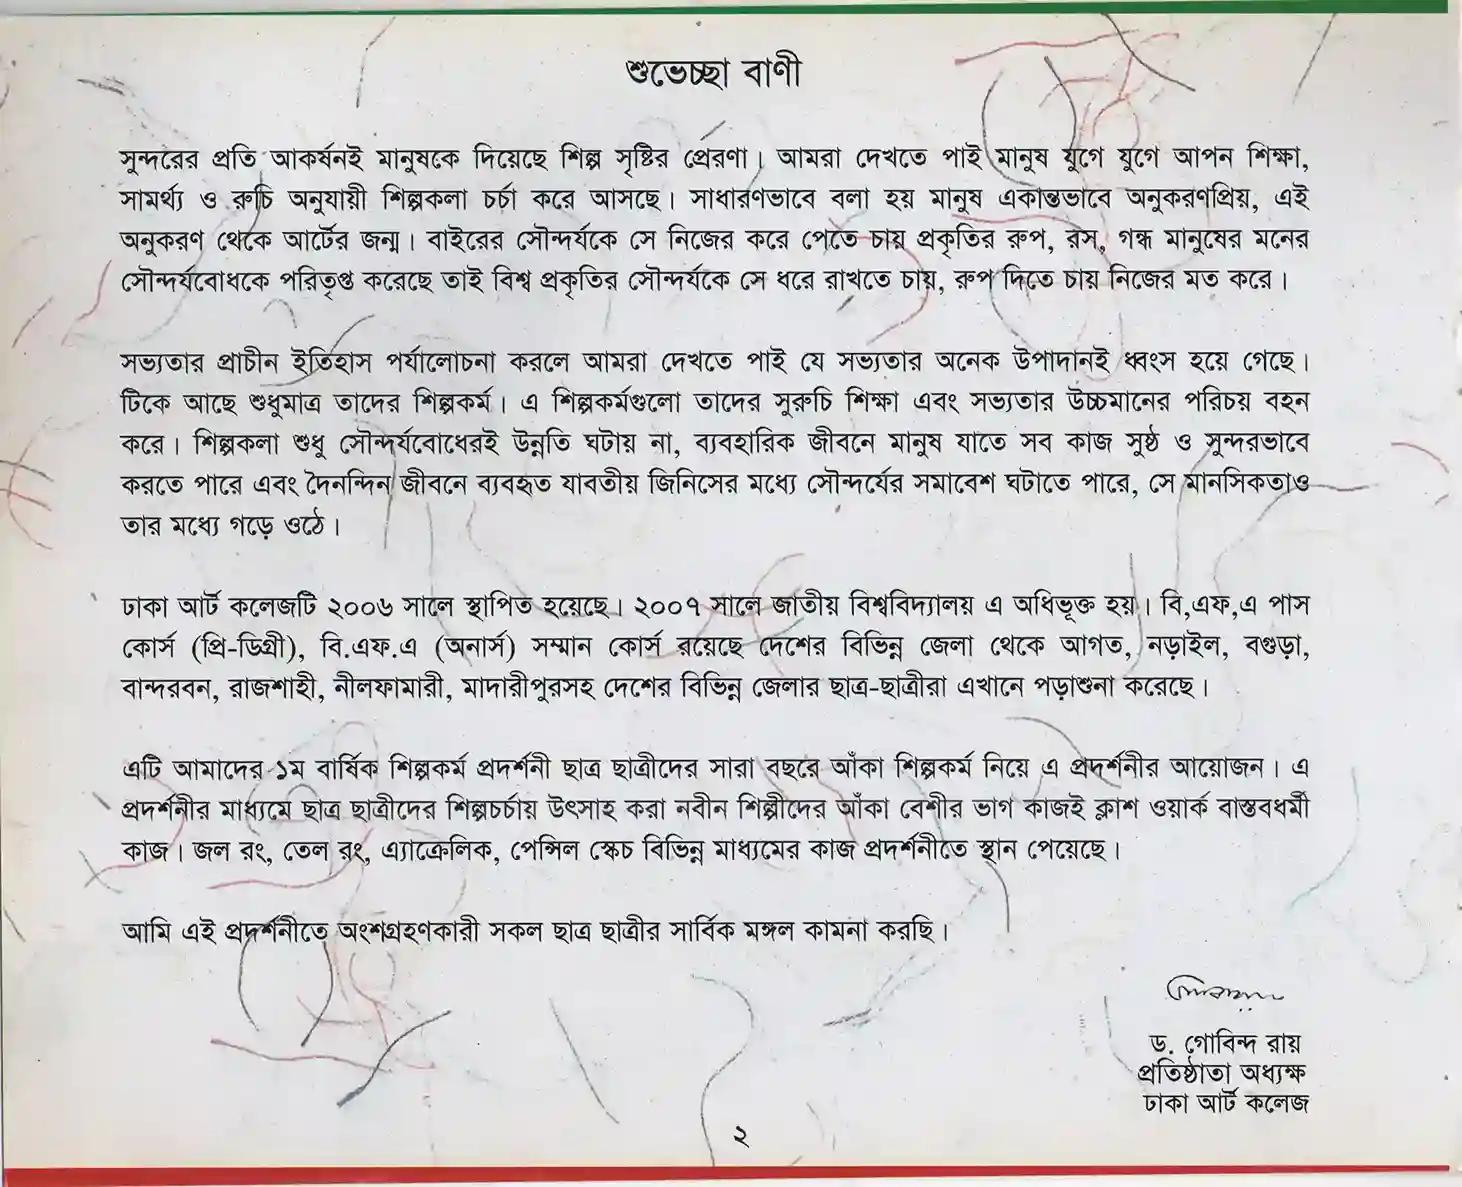 শুভেচ্ছা বাণী
সুন্দরের প্রতি আকর্ষনই মানুষকে দিয়েছে শিল্প সৃষ্টির প্রেরণা। আমরা দেখতে পাই মানুষ যুগে যুগে আপন শিক্ষা,
সামর্থ্য ও রুচি অনুযায়ী শিল্পকলা চর্চা করে আসছে। সাধারণভাবে বলা হয় মানুষ একান্তভাবে অনুকরণপ্রিয়, এই
অনুকরণ থেকে আর্টের জন্ম। বাইরের সৌন্দর্যকে সে নিজের করে পেতে চায় প্রকৃতির রুপ, রস, গন্ধ মানুষের মনের
সৌন্দর্যবোধকে পরিতৃপ্ত করেছে তাই বিশ্ব প্রকৃতির সৌন্দর্যকে সে ধরে রাখতে চায়, রুপ দিতে চায় নিজের মত করে।
সভ্যতার প্রাচীন ইতিহাস পর্যালোচনা করলে আমরা দেখতে পাই যে সভ্যতার অনেক উপাদানই ধ্বংস হয়ে গেছে।
টিকে আছে শুধুমাত্র তাদের শিল্পকর্ম। এ শিল্পকর্মগুলো তাদের সুরুচি শিক্ষা এবং সভ্যতার উচ্চমানের পরিচয় বহন
করে। শিল্পকলা শুধু সৌন্দর্যবোধেরই উন্নতি ঘটায় না, ব্যবহারিক জীবনে মানুষ যাতে সব কাজ সুষ্ঠ ও সুন্দরভাবে
করতে পারে এবং দৈনন্দিন জীবনে ব্যবহৃত যাবতীয় জিনিসের মধ্যে সৌন্দর্যের সমাবেশ ঘটাতে পারে, সে মানসিকতাও
তার মধ্যে গড়ে ওঠে।
ঢাকা আর্ট কলেজটি ২০০৬ সালে স্থাপিত হয়েছে। ২০০৭ সালে জাতীয় বিশ্ববিদ্যালয় এ অধিভূক্ত হয়। বি,এফ,এ পাস
কোর্স (প্রি-ডিগ্রী), বি.এফ.এ (অনার্স) সম্মান কোর্স রয়েছে দেশের বিভিন্ন জেলা থেকে আগত, নড়াইল, বগুড়া,
বান্দরবন, রাজশাহী, নীলফামারী, মাদারীপুরসহ দেশের বিভিন্ন জেলার ছাত্র-ছাত্রীরা এখানে পড়াশুনা করেছে।
এটি আমাদের ১ম বার্ষিক শিল্পকর্ম প্রদর্শনী ছাত্র ছাত্রীদের সারা বছরে আঁকা শিল্পকর্ম নিয়ে এ প্রদর্শনীর আয়োজন। এ
প্রদর্শনীর মাধ্যমে ছাত্র ছাত্রীদের শিল্পচর্চায় উৎসাহ করা নবীন শিল্পীদের আঁকা বেশীর ভাগ কাজই ক্লাশ ওয়ার্ক বাস্তবধর্মী
কাজ। জল রং, তেল রং, এ্যাক্রেলিক, পেন্সিল স্কেচ বিভিন্ন মাধ্যমের কাজ প্রদর্শনীতে স্থান পেয়েছে।
আমি এই প্রদর্শনীতে অংশগ্রহণকারী সকল ছাত্র ছাত্রীর সার্বিক মঙ্গল কামনা করছি।
ড. গোবিন্দ রায়
প্রতিষ্ঠাতা অধ্যক্ষ
ঢাকা আর্ট কলেজ
২